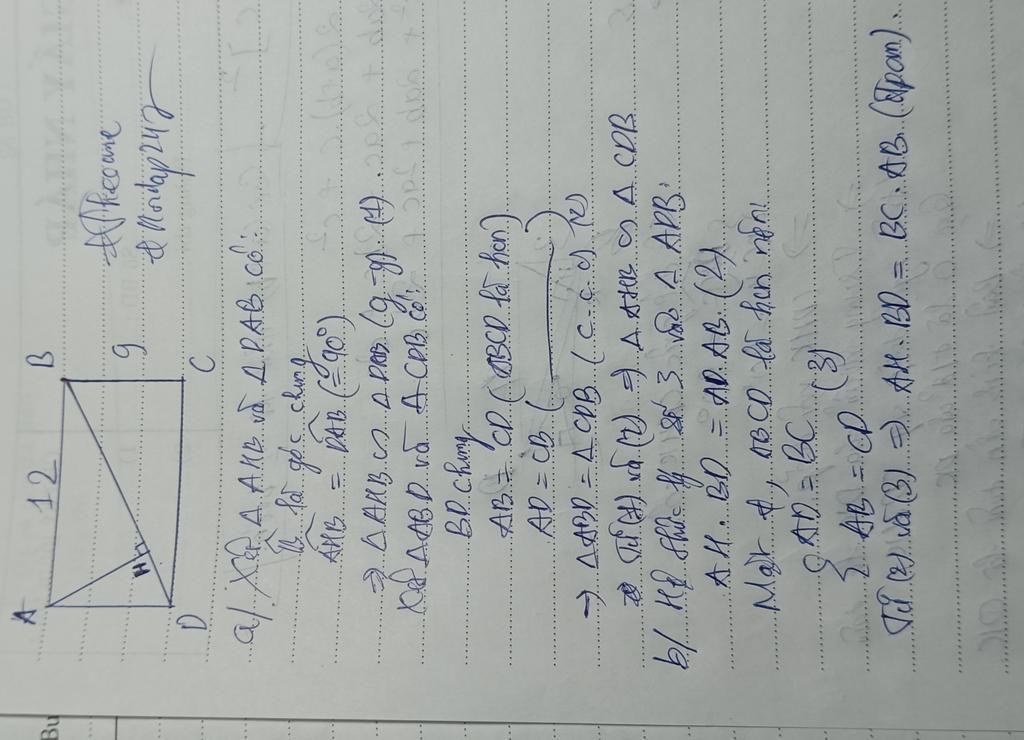 A 12 B
9
H
D C
a). Xét Δ AHB và Δ DAB có:
B̂ là góc chung
AHB = DAB (= 90°)
=> Δ AHB ∽ Δ DAB (g-g) (1).
Xét Δ ABD và Δ CDB có:
BD chung
AB = CD (ABCD là hcn)
AD = CB (
-> Δ ABD = Δ CDB (c-c-c) (2)
Từ (1) và (2) => Δ AHB ∽ Δ CDB
b/ 3 Δ ADB.
AH. BD = AD. AB. (2)
Mặt ≠, ABCD là hcn nên:
{ AD = BC (3)
AB = CD
Từ (2) và (3) => AH. BD = BC. AB. (đpcm).